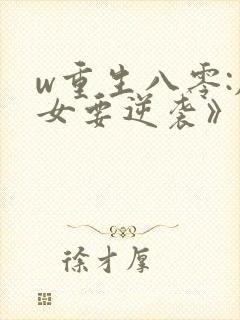 w重生八零:
女要逆袭》
徐才厚